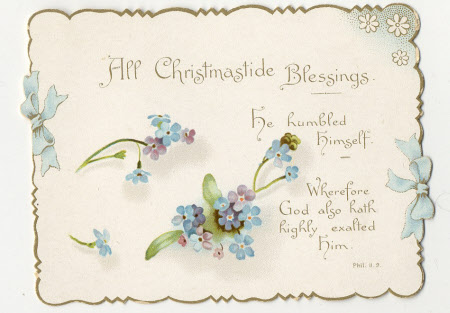 All Christmastide Blessings.
He humbled
Himself.
Wherefore
God also hath
highly exalted
Him.
Phil. 2. 9.